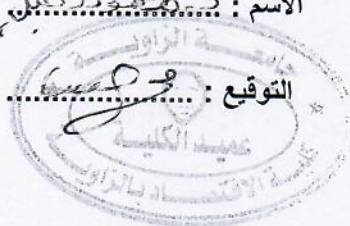 الاسم : د. محمود
التوقيع :
جامعة الزاوية
عميد الكلية
كلية الاقتصاد بالزاوية